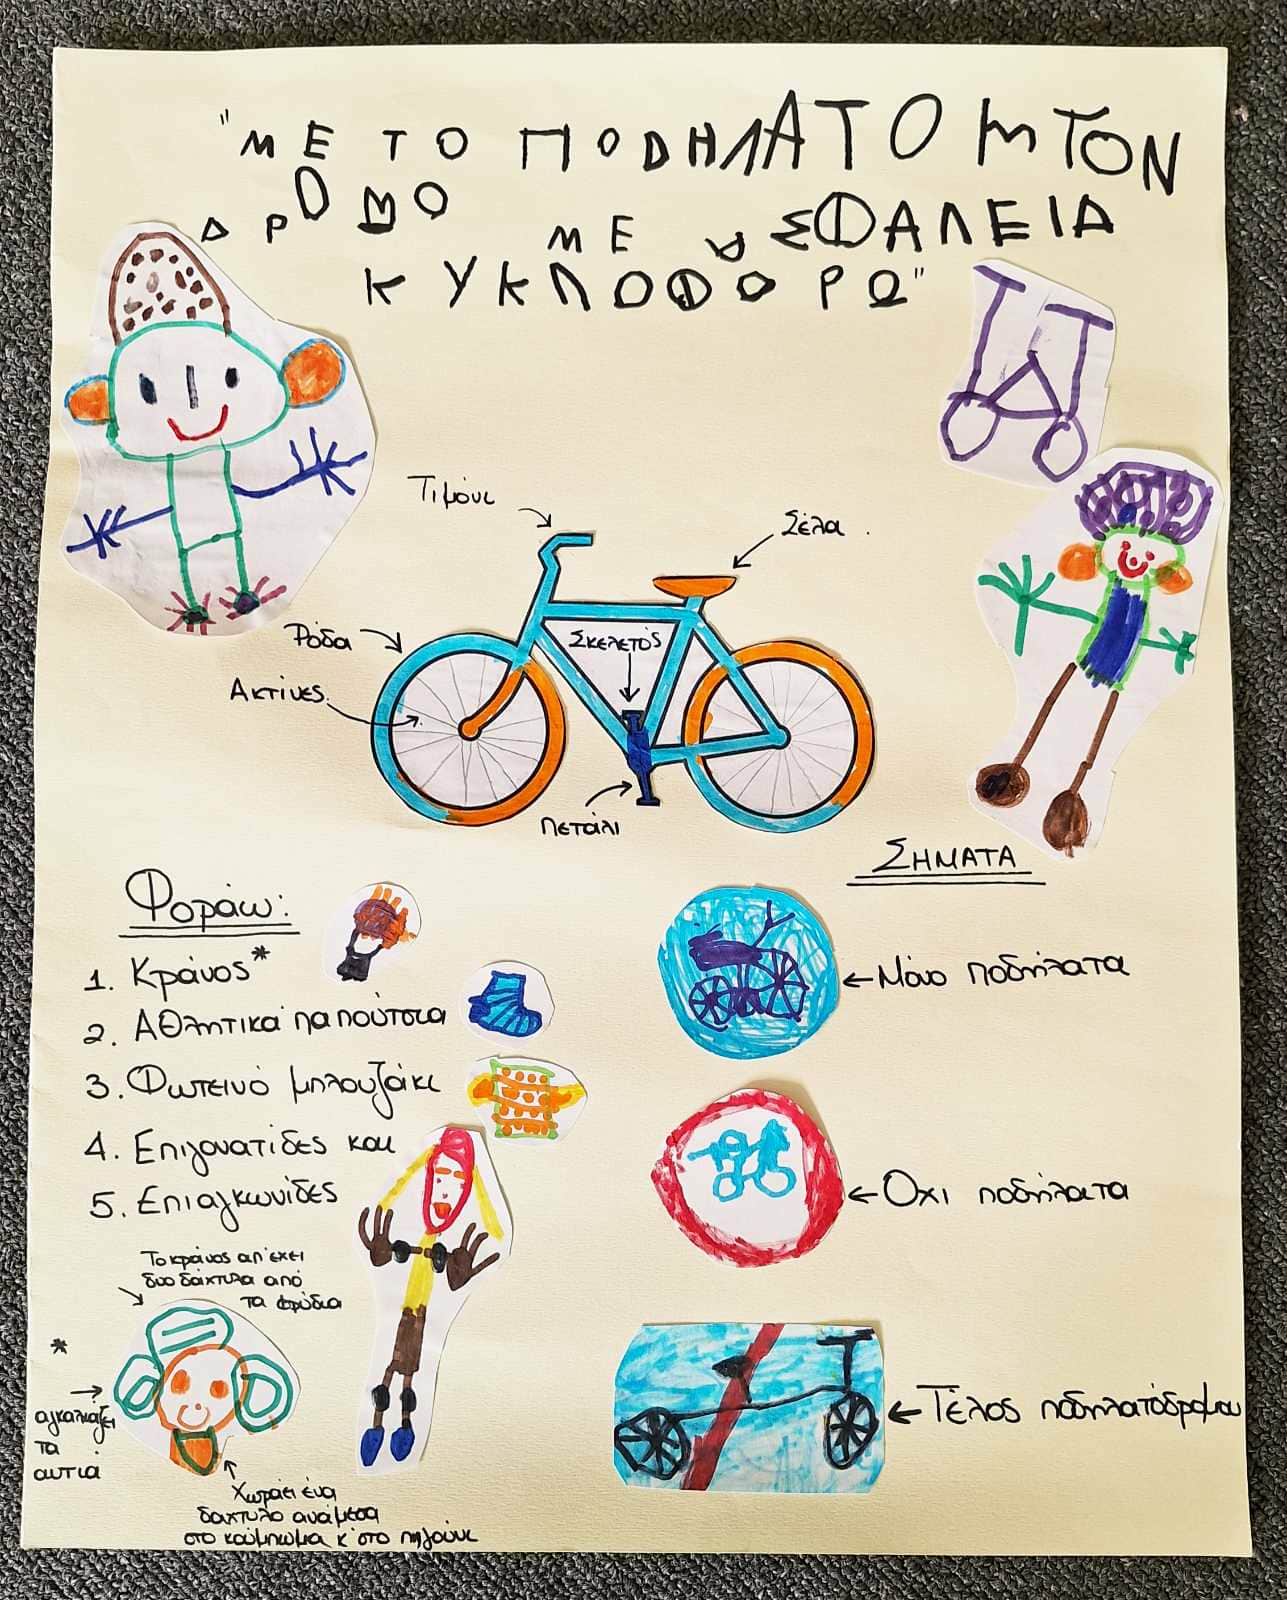 "ΜΕ ΤΟ ΠΟΔΗΛΑΤΟ ΣΤΟΝ
ΔΡΟΜΟ ΜΕ ΑΣΦΑΛΕΙΑ
ΚΥΚΛΟΦΟΡΩ"
Τιμόνι
Σέλα
Ρόδα
Σκελετός
Ακτίνες
Πετάλι
ΣΗΜΑΤΑ
Φοράω:
1. Κράνος*
2. Αθλητικά παπούτσια
3. Φωτεινό μπλουζάκι
4. Επιγονατίδες και
5. Επιαγκωνίδες
← Μόνο ποδήλατα
← Όχι ποδήλατα
← Τέλος ποδηλατόδρομου
Το κράνος απ'έχει
δυο δάχτυλα από
τα φρύδια
*
αγκαλιάζει
τα
αυτιά
Χωράει ένα
δαχτυλο ανάμεσα
στο κούμπωμα κ' στο πηγούνι